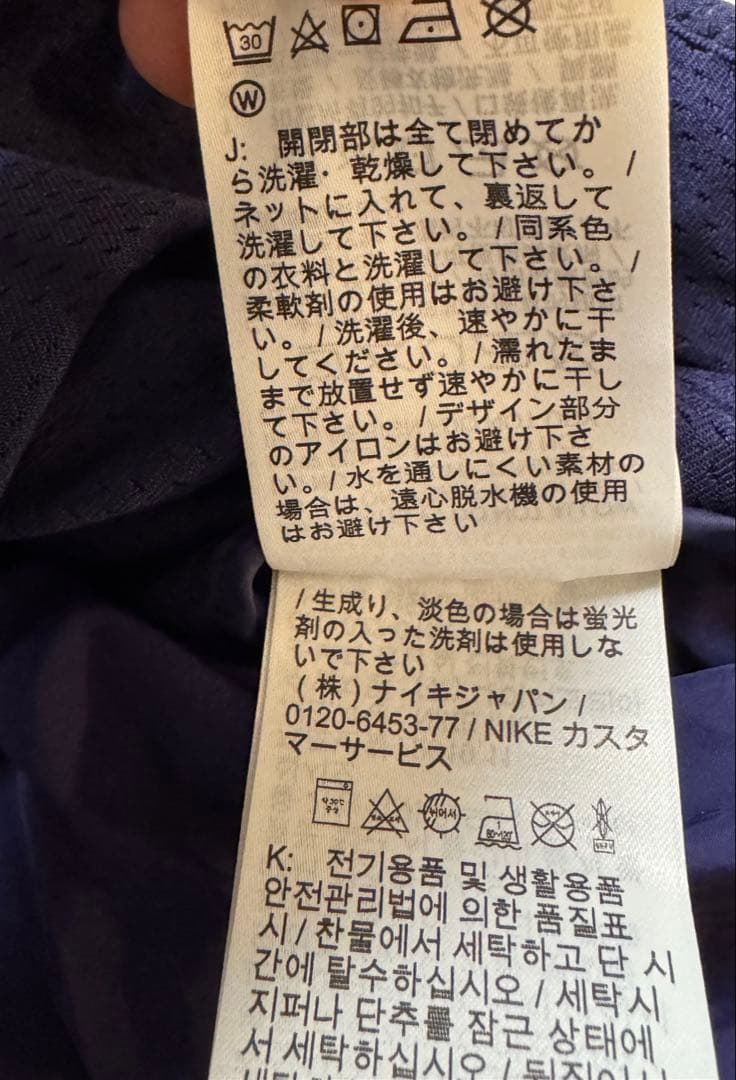 30
W
J: 開閉部は全て閉めてか
ら洗濯・乾燥して下さい。 /
ネットに入れて、裏返して
洗濯して下さい。 / 同系色
の衣料と洗濯して下さい。 /
柔軟剤の使用はお避け下さ
い。 / 洗濯後、速やかに干
してください。 / 濡れたまま
まで放置せず速やかに干し
て下さい。 / デザイン部分
のアイロンはお避け下さ
い。/ 水を通しにくい素材の
場合は、遠心脱水機の使用
はお避け下さい
/ 生成り、淡色の場合は蛍光
剤の入った洗剤は使用しな
いで下さい
(株) ナイキジャパン /
0120-6453-77 / NIKE カスタ
マーサービス
K: 전기용품 및 생활용품
안전관리법에 의한 품질표
시 / 찬물에서 세탁하고 단 시
간에 탈수하십시오 / 세탁시
지퍼나 단추를 잠근 상태에
서 세탁하십시오 /